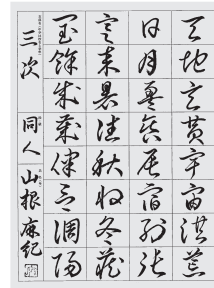 天地玄黄宇宙洪荒
日月盈昃辰宿列張
寒来暑往秋収冬蔵
閏餘成歳律呂調陽
三次 同人 山根麻紀